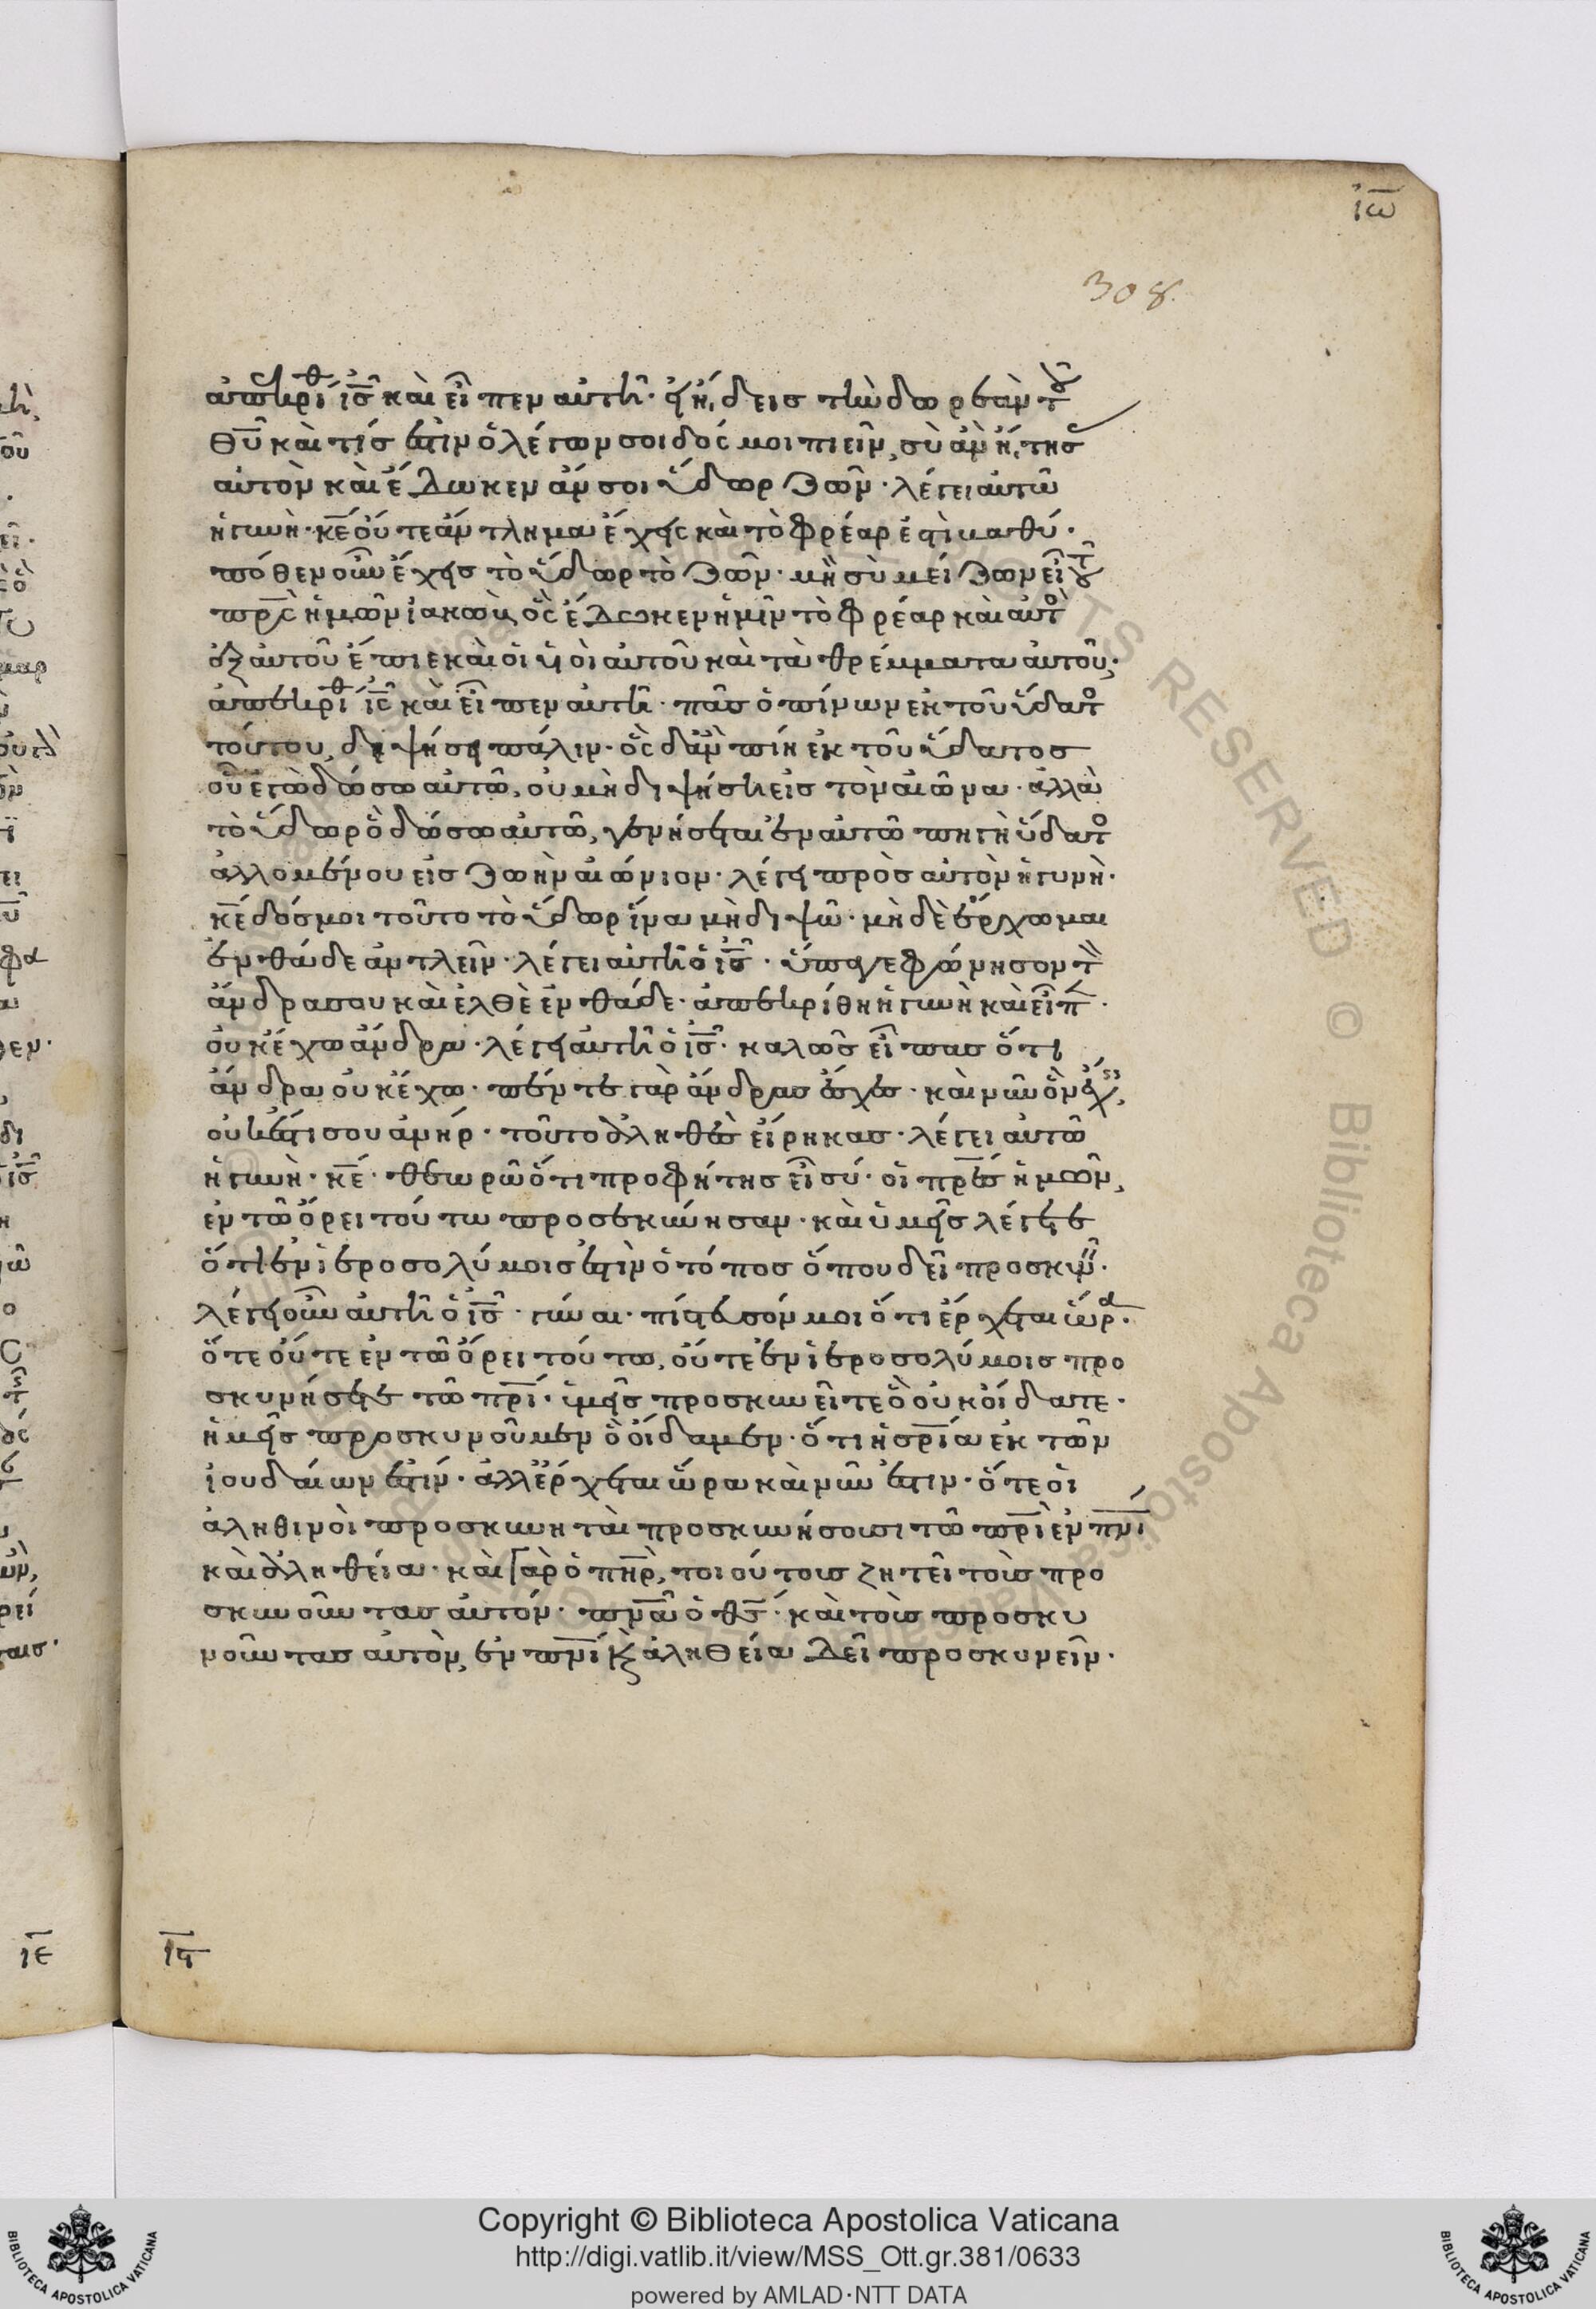 ἰω̅
308.
ἀπεκρίθ ἰς̅ καὶ εἶπεν αὐτῆ· εἰ ἤδεις τὴν δωρεὰν τοῦ
θυ̅ καὶ τίς ἐστιν ὁ λέγων σοι δός μοι πιεῖν, σὺ ἂν ἤτησ
αὐτὸν καὶ ἔδωκεν ἄν σοι ὕδωρ ζῶν· λέγει αὐτῶ
ἡ γυνὴ· κε̅ οὔτε ἄντλημα ἔχεις καὶ τὸ φρέαρ ἐστὶ βαθύ·
πόθεν οὖν ἔχεις τὸ ὕδωρ τὸ ζῶν· μὴ σὺ μείζων εἶ τοῦ
πρς̅ ἡμῶν ἰακὼβ, ὃς ἔδωκεν ἡμῖν τὸ φρέαρ καὶ αὐτὸ
ἐξ αὐτοῦ ἔπιε καὶ οἱ υἱοὶ αὐτοῦ καὶ τὰ θρέμματα αὐτοῦ;
ἀπεκρίθ ἰς̅ καὶ εἶπεν αὐτῆ· πᾶς ὁ πίνων ἐκ τοῦ ὕδατο
τούτου, διψήσει πάλιν· ὃς δἂν πίη ἐκ τοῦ ὕδατος
οὗ ἐγὼ δώσω αὐτῶ, οὐ μὴ διψήση εἰς τὸν αἰῶνα· ἀλλὰ
τὸ ὕδωρ ὃ δώσω αὐτῶ, γενήσεται ἐν αὐτῶ πηγὴ ὕδατο
ἁλλομένου εἰς ζωὴν αἰώνιον· λέγει πρὸς αὐτὸν ἡ γυνὴ·
κε̅ δός μοι τοῦτο τὸ ὕδωρ ἵνα μὴ διψῶ· μὴ δὲ ἔρχωμαι
ἐνθάδε ἀντλεῖν· λέγει αὐτῆ ὁ ἰς̅· ὕπαγε φώνησον τὸν
ἄνδρα σου καὶ ἐλθὲ ἐνθάδε· ἀπεκρίθη ἡ γυνὴ καὶ εἶπ·
οὐκ ἔχω ἄνδρα· λέγει αὐτῆ ὁ ἰς̅· καλῶς εἶπας ὅτι
ἄνδρα οὐκ ἔχω· πέντε γὰρ ἄνδρας ἔσχες· καὶ νῦν ὃν ἔχεις,
οὐκ ἔστι σου ἀνήρ· τοῦτο ἀληθὲς εἴρηκας· λέγει αὐτῶ
ἡ γυνὴ· κε̅· θεωρῶ ὅτι προφήτης εἶ σύ· οἱ πρες̅ ἡμῶν,
ἐν τῶ ὄρει τούτω προσεκύνησαν· καὶ ὑμεῖς λέγετε
ὅτι ἐν ἱεροσολύμοις ἐστὶν ὁ τόπος ὅπου δεῖ προσκυν·
λέγει οὖν αὐτῆ ὁ ἰς̅· γύναι· πίστευσόν μοι ὅτι ἔρχεται ὥρα·
ὅτε οὔτε ἐν τῶ ὄρει τούτω, οὔτε ἐν ἱεροσολύμοις προ
σκυνήσετε τῶ πρι̅· ὑμεῖς προσκυνεῖτε ὃ οὐκ οἴδατε·
ἡμεῖς προσκυνοῦμεν ὃ οἴδαμεν· ὅτι ἡ σρι̅α ἐκ τῶν
ἰουδαίων ἐστίν· ἀλλ ἔρχεται ὥρα καὶ νῦν ἐστιν· ὅτε οἱ
ἀληθινοὶ προσκυνηταὶ προσκυνήσουσι τῶ πρι̅ ἐν πνι̅
καὶ ἀληθεία· καὶ γὰρ ὁ πηρ̅, τοιούτους ζητεῖ τοὺς προ
σκυνοῦντας αὐτόν· πνα̅ ὁ θς̅· καὶ τοὺς προσκυ
νοῦντας αὐτὸν, ἐν πνι̅ κ ἀληθεία δεῖ προσκυνεῖν·
ιε̅
ις̅
Copyright © Biblioteca Apostolica Vaticana
http://digi.vatlib.it/view/MSS_Ott.gr.381/0633
powered by AMLAD·NTT DATA